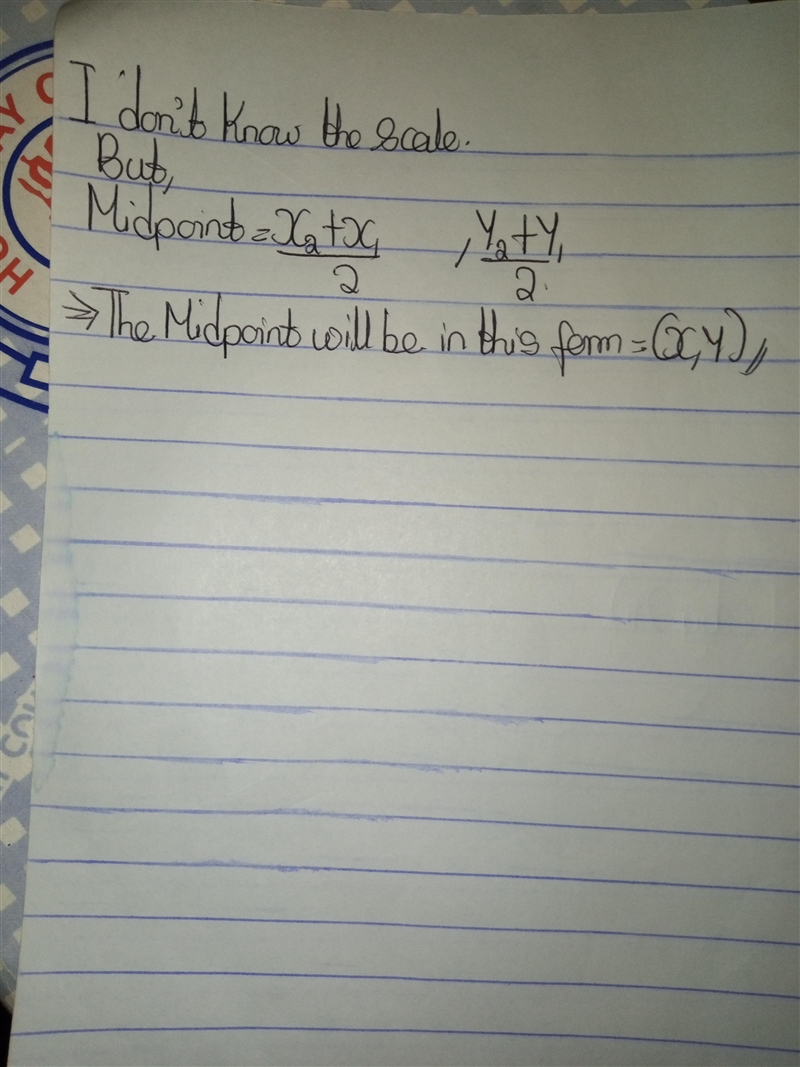 I don't know the scale.
But,
Midpoint = x₂+x₁/2 , Y₂+Y₁/2.
⇒ The Midpoint will be in this form = (x, y)//